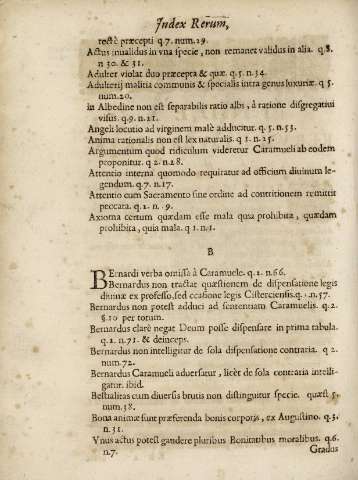 Index Rerum,
rectè præcepti q.7. num.29.
Actus inualidus in vna specie, non remanet validus in alia. q.8.
n 30. & 31.
Adulter violat duo præcepta & quæ. q.5. n.34.
Adulterij malitia communis & specialis intra genus luxuriæ. q 5.
num.20.
in Albedine non est separabilis ratio albi, à ratione disgregatiui
visus. q.9. n.21.
Angeli locutio ad virginem malè adducitur. q.5. n.53.
Anima rationalis non est lex naturalis. q 1. n.25.
Argumentum quod ridiculum videretur Caramueli ab eodem
proponitur. q 2. n.28.
Attentio interna quomodo requiratur ad officium diuinum le-
gendum. q.7. n.17.
Attentio cum Sacramento sine ordine ad contritionem remittit
peccata. q.2. n. 9.
Axioma certum quædam esse mala quia prohibita, quædam
prohibita, quia mala. q 1. n.1.
B
Bernardi verba omissa à Caramuele. q.1. n.66.
Bernardus non tractat quæstionem de dispensatione legis
diuinæ ex professo, sed occasione legis Cisterciensis. q. n.57.
Bernardus non potest adduci ad sententiam Caramuelis. q.2.
§.10 per totum.
Bernardus clarè negat Deum posse dispensare in prima tabula.
q.1. n.71. & deinceps.
Bernardus non intelligitur de sola dispensatione contraria. q 2.
num.72.
Bernardus Caramueli aduersatur, licèt de sola contraria intelli-
gatur. ibid.
Bestialitas cum diuersis brutis non distinguitur specie. quæst 5.
num.38.
Bona animæ sunt præferenda bonis corporis, ex Augustino. q.3.
n.31.
Vnus actus potest gaudere pluribus Bonitatibus moralibus. q.6.
n.7. Gradus